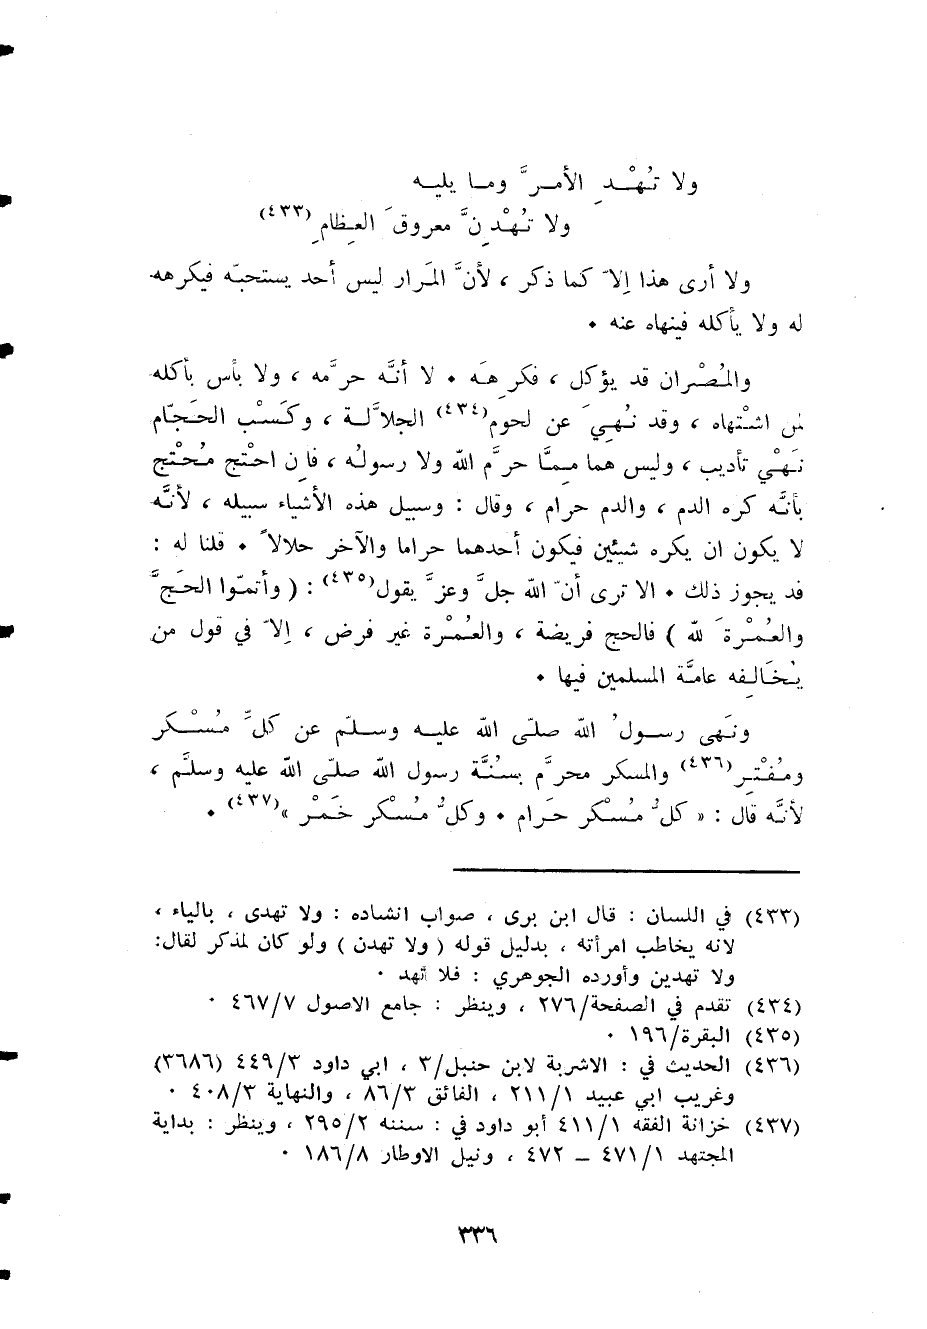 ولا تُهْـدِ الأمـرَّ ومـا يليـه
ولا تُهْدِنَّ معروقَ العِظامِ (٤٣٣)
ولا أرى هذا إلاّ كما ذكر ، لأنَّ المَرار ليس أحد يستحبّه فيكرهه
له ولا يأكله فينهاه عنه ٠
والمُصْران قد يؤكل ، فكرِهَه ٠ لا أنَّه حرَّمه ، ولا بأس بأكله
لمن اشتْهاه ، وقد نُهِيَ عن لحوم(٤٣٤) الجلاَّلة ، وكَسْب الحَجّام
نَهْيَ تأديب ، وليس هما مِمَّا حرَّم الله ولا رسولُه ، فإن احتْج مُحْتج
بأنَّه كره الدم ، والدم حرام ، وقال : وسبيل هذه الأشياء سبيله ، لأنَّه
لا يكون ان يكره شيئين فيكون أحدهما حراما والآخر حلالاً ٠ قلنا له :
قد يجوز ذلك ٠ الا ترى أنّ الله جلَّ وعزَّ يقول(٤٣٥) : ( وأتمّوا الحَجَّ
والعُمْرةَ لله ) فالحج فريضة ، والعُمْرة غير فرض ، إلاّ في قول من
يُخَالِفه عامَّة المسلمين فيها ٠
ونَهى رسـولُ الله صلّى الله عليـه وسـلّم عن كلِّ مُسْـكر
ومُفْتِر(٤٣٦) والمسكر محرَّم بسـُنَّة رسول الله صلّى الله عليه وسلَّم ،
لأنَّه قال : « كلُّ مُسْكر حَرام ٠ وكلُّ مُسْكر خَمْر »(٤٣٧) ٠
(٤٣٣) في اللسان : قال ابن برى ، صواب انشاده : ولا تهدى ، بالياء ،
لانه يخاطب امرأته ، بدليل قوله ( ولا تهدن ) ولو كان لمذكر لقال:
ولا تهدين وأورده الجوهري : فلا تهد ٠
(٤٣٤) تقدم في الصفحة/٢٧٦ ، وينظر : جامع الاصول ٤٦٧/٧ ٠
(٤٣٥) البقرة/١٩٦ ٠
(٤٣٦) الحديث في : الاشربة لابن حنبل/٣ ، ابي داود ٤٤٩/٣ (٣٦٨٦)
وغريب ابي عبيد ٢١١/١ ، الفائق ٨٦/٣ ، والنهاية ٤٠٨/٣ ٠
(٤٣٧) خزانة الفقه ٤١١/١ أبو داود في : سننه ٢٩٥/٢ ، وينظر : بداية
المجتهد ٤٧١/١ ــ ٤٧٢ ، ونيل الاوطار ١٨٦/٨ ٠
٣٣٦